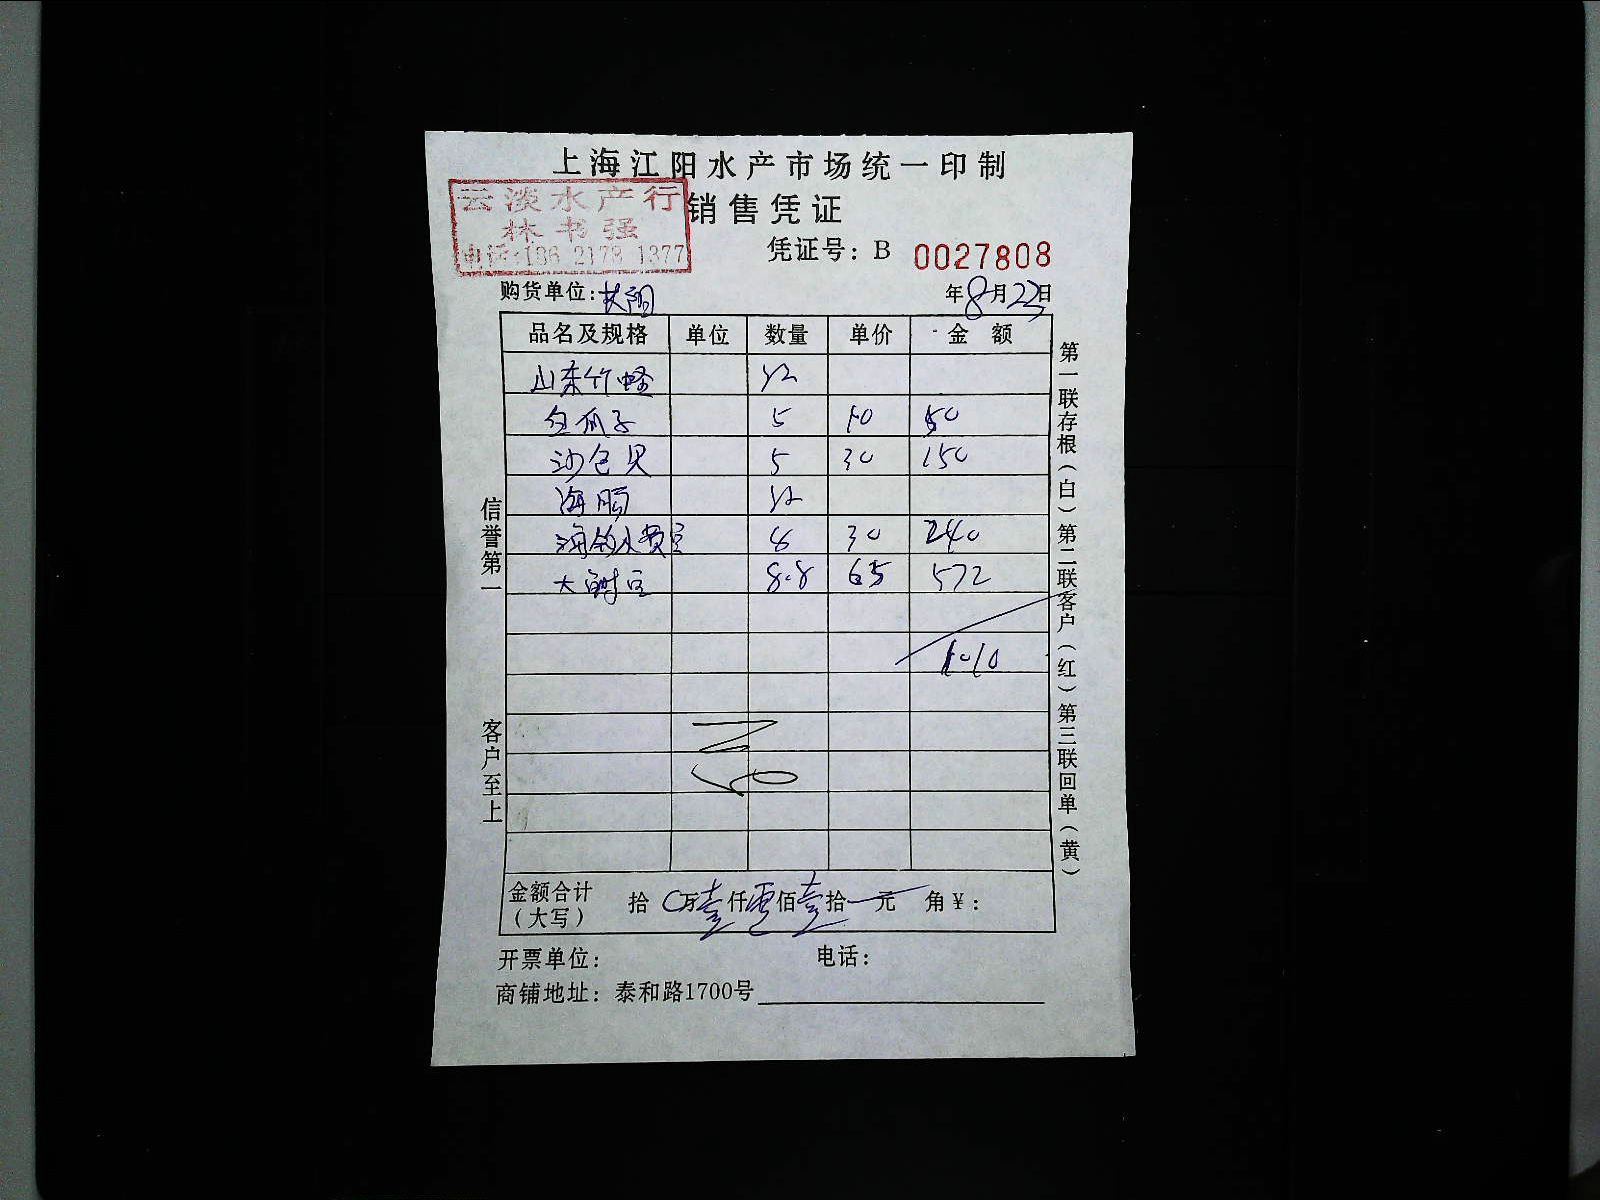 上海江阳水产市场统一印制
云淡水产行
林书强
电话:136 2178 1377
销售凭证
凭证号: B 0027808
购货单位:
年8月22日
品名及规格 单位 数量 单价 金额
山东竹蛏
白瓜子 5 10 50
沙包贝 5 30 150
海肠
6 30 240
大 8.8 65 572
1010
金额合计(大写) 拾 0万壹仟零佰壹拾 元 角¥:
开票单位: 电话:
商铺地址: 泰和路1700号
信誉第一 客户至上
第一联存根(白) 第二联客户(红) 第三联回单(黄)